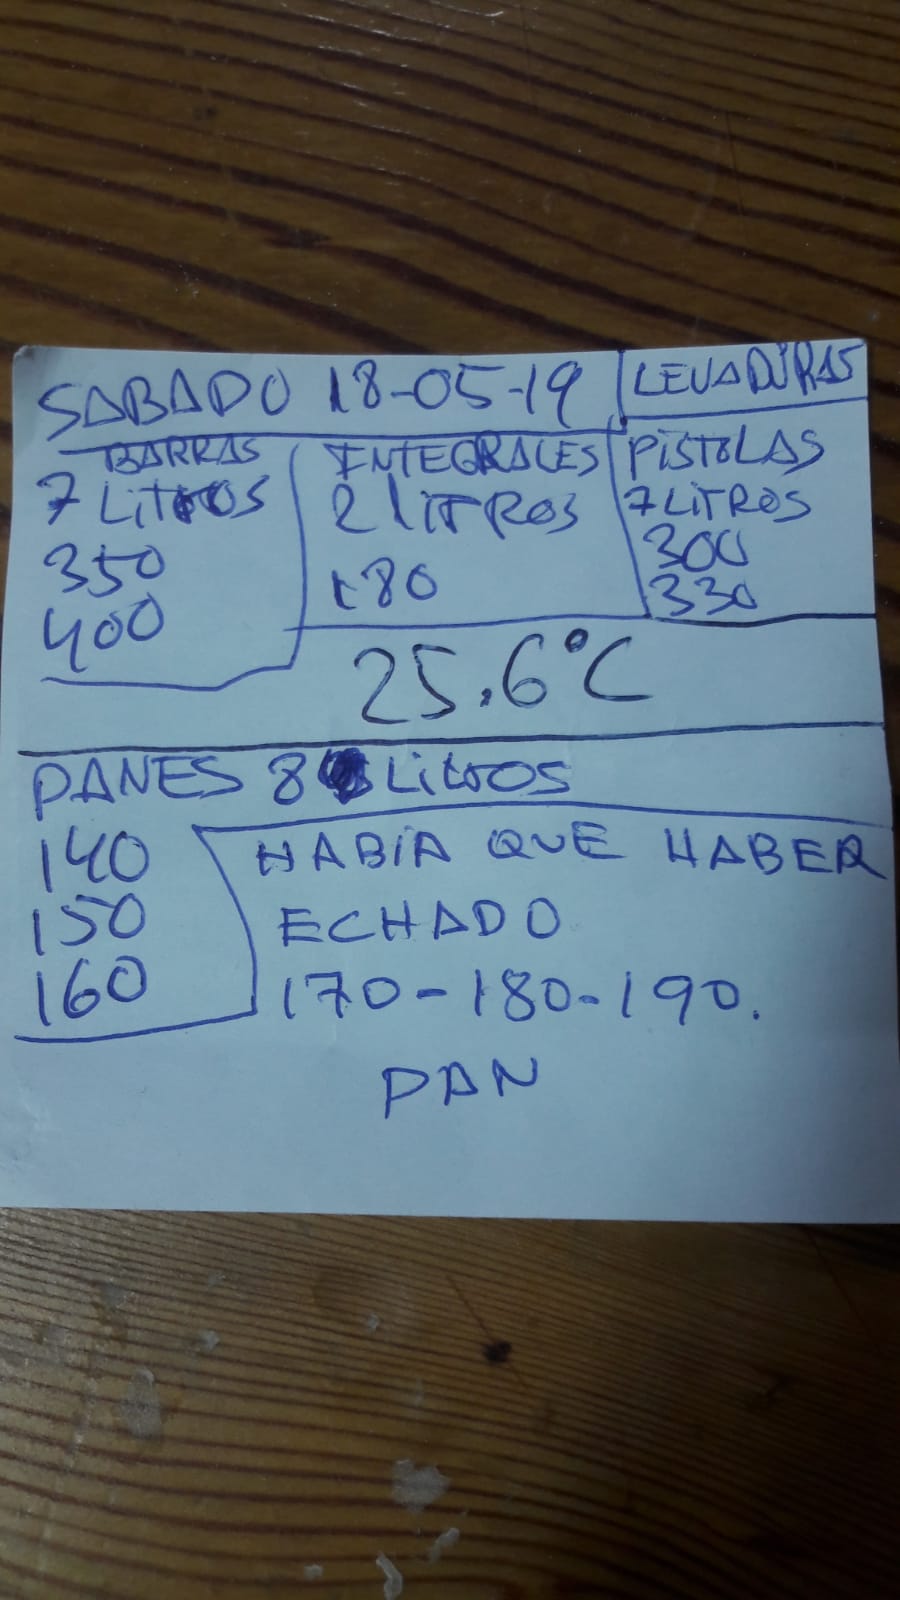 SABADO 18-05-19
LEVADURAS
BARRAS
7 LITROS
350
400
INTEGRALES
2 LITROS
180
PISTOLAS
7 LITROS
300
330
25.6°C
PANES 8 LitROS
140
150
160
HABÍA QUE HABER
ECHADO
170-180-190.
PAN